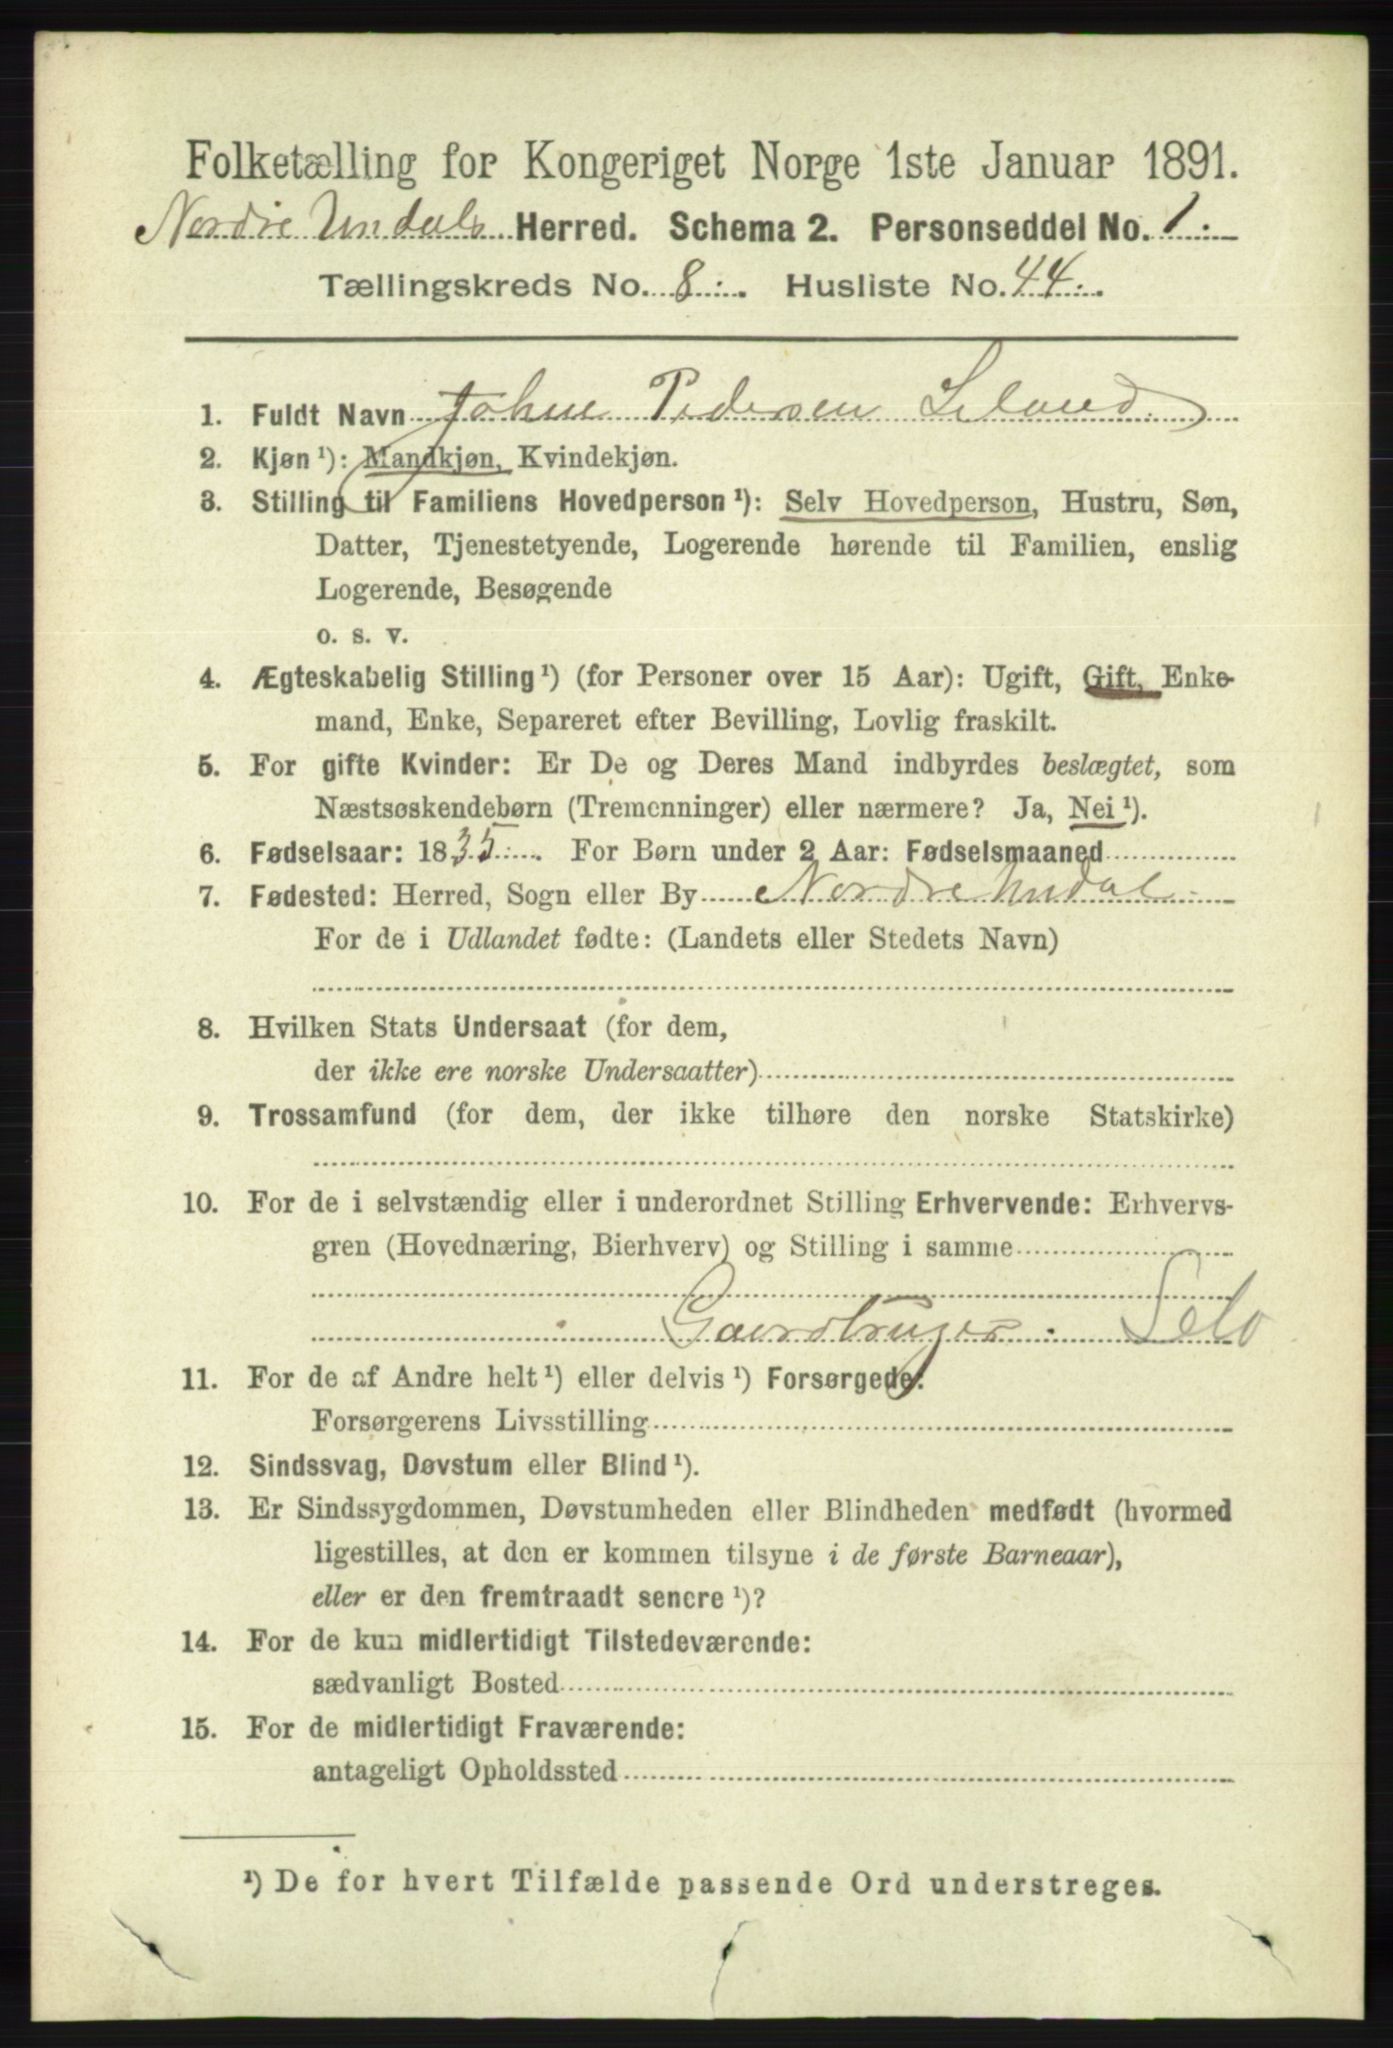 Folketælling for Kongeriget Norge 1ste Januar 1891.
Nordre Undals Herred. Schema 2. Personseddel No. 1.
Tællingskreds No. 8. Husliste No. 44.
1. Fuldt Navn Johne Pedersen Leland
2. Kjøn ¹): Mandkjøn, Kvindekjøn.
3. Stilling til Familiens Hovedperson ¹): Selv Hovedperson, Hustru, Søn,
Datter, Tjenestetyende, Logerende hørende til Familien, enslig
Logerende, Besøgende
o. s. v.
4. Ægteskabelig Stilling ¹) (for Personer over 15 Aar): Ugift, Gift, Enke-
mand, Enke, Separeret efter Bevilling, Lovlig fraskilt.
5. For gifte Kvinder: Er De og Deres Mand indbyrdes beslægtet, som
Næstsøskendebørn (Tremenninger) eller nærmere? Ja, Nei ¹).
6. Fødselsaar: 1835. For Børn under 2 Aar: Fødselsmaaned
7. Fødested: Herred, Sogn eller By Nordre Undal
For de i Udlandet fødte: (Landets eller Stedets Navn)
8. Hvilken Stats Undersaat (for dem,
der ikke ere norske Undersaatter)
9. Trossamfund (for dem, der ikke tilhøre den norske Statskirke)
10. For de i selvstændig eller i underordnet Stilling Erhvervende: Erhvervs-
gren (Hovednæring, Bierhverv) og Stilling i samme
Gaardbruger. Selv
11. For de af Andre helt ¹) eller delvis ¹) Forsørgede:
Forsørgerens Livsstilling
12. Sindssvag, Døvstum eller Blind ¹).
13. Er Sindssygdommen, Døvstumheden eller Blindheden medfødt (hvormed
ligestilles, at den er kommen tilsyne i de første Barneaar),
eller er den fremtraadt senere ¹)?
14. For de kun midlertidigt Tilstedeværende:
sædvanligt Bosted
15. For de midlertidigt Fraværende:
antageligt Opholdssted
¹) De for hvert Tilfælde passende Ord understreges.